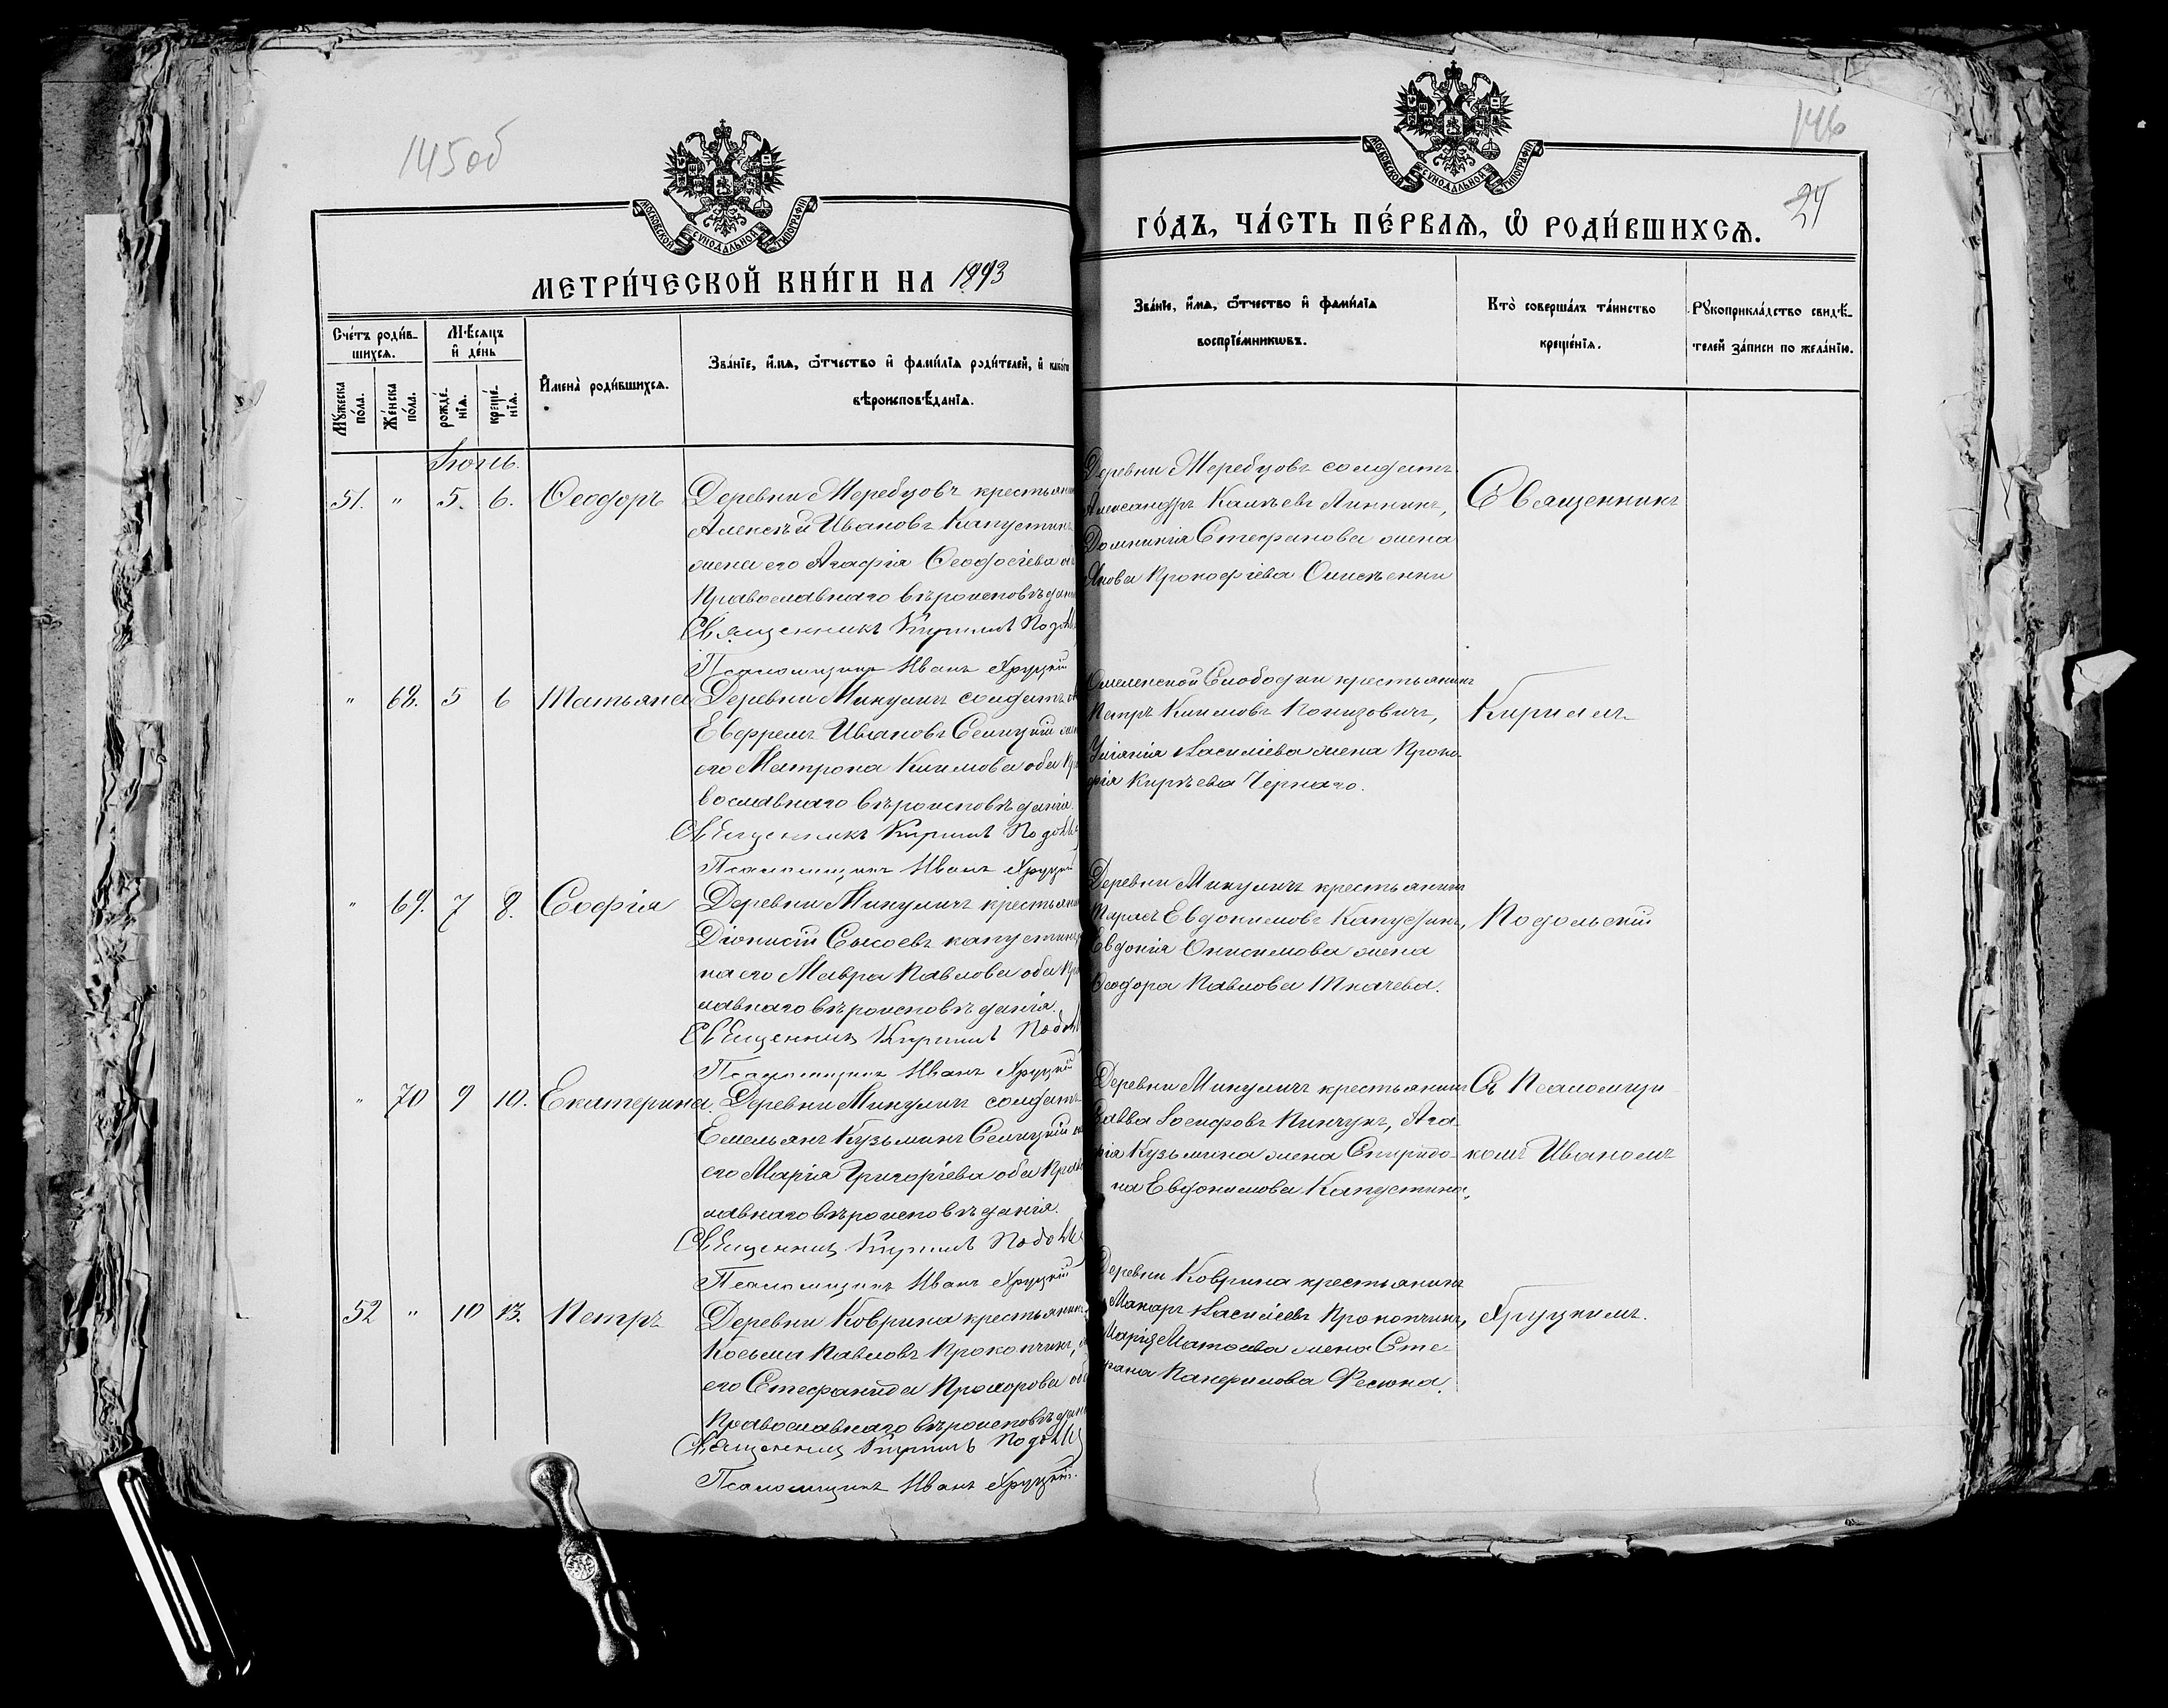 145 об
МОСКОВСКОЙ СУНОДАЛЬНОЙ ТИПОГРАФІИ
МЕТРИ́ЧЕСКОЙ КНИ́ГИ НА 1893
Сче́тъ роди́в-
шихсѧ.
Мѣ́сѧцъ
и҆ де́нь
Мꙋ́жеска по́ла.
Же́нска по́ла.
рожде́-
нїѧ.
креще́-
нїѧ.
И҆мена̀ роди́вшихсѧ.
Зва́нїе, и҆́мѧ, ѻ҆́тчество и҆ фами́лїѧ роди́телей, и҆ како́гѡ
вѣроисповѣ́данїѧ.
Іюнь.
51. " 5. 6. Ѳеодоръ
Деревни Меребцовъ крестьянин
Алексѣй Ивановъ Капустинъ
жена его Агафія Ѳеодосіева
Православнаго вѣроисповѣдан
Священникъ Кириллъ Подольс
Псаломщикъ Иванъ Хруцкій
" 68. 5 6 Татьяна
Деревни Микуличъ солдатъ
Евфремъ Ивановъ Селицкій
его Матрона Климова оба Пра
вославнаго вѣроисповѣданія.
Священникъ Кириллъ Подольс
Псаломщикъ Иванъ Хруцкій
" 69. 7 8. Софія
Деревни Микуличъ крестьян
Діонисій Сысоевъ Капустинъ
на его Мавра Павлова оба Пра
лавнаго вѣроисповѣданія.
Священникъ Кириллъ Подол
Псаломщикъ Иванъ Хруцкій
" 70 9 10. Екатерина.
Деревни Микуличъ солдатъ
Емельянъ Кузьминъ Селицкій
его Марія Григоріева оба Прав
лавнаго вѣроисповѣданія.
Священникъ Кириллъ Подольс
Псаломщикъ Иванъ Хруцкій
52 " 10 13. Петръ
Деревни Коврина крестьянинъ
Косьма Павловъ Прокопчикъ,
его Стефанида Прохорова оба
Православнаго вѣроисповѣдан
Священникъ Кириллъ Подольс
Псаломщикъ Иванъ Хруцкій.
146
24
МОСКОВСКОЙ СУНОДАЛЬНОЙ ТИПОГРАФІИ
ГО́ДЪ, ЧА́СТЬ ПЕ́РВАѦ, Ѡ҆ РОДИ́ВШИХСѦ.
Зва́нїе, и҆́мѧ, ѻ҆́тчество и҆ фами́лїѧ
воспрїе́мникѡвъ.
Кто̀ соверша́лъ та́инство
креще́нїѧ.
Рꙋкоприкла́дство свидѣ́-
телей за́писи по жела́нїю.
Деревни Меребцовъ солдатъ
Александръ
Домникія Стефанова жена
Якова Прокофіева
Священникъ
Смеленской Слободки крестьянинъ
Петръ Климовъ Понизовичъ,
Уліанія Василіева жена Проко-
фія Кирѣева Чернаго.
Кириллъ
Деревни Микуличъ крестьянинъ
Тарасъ Евдокимовъ Капустинъ,
Евдокія Онисимова жена
Ѳеодора Павлова Ткачева.
Подольскій
Деревни Микуличъ крестьянинъ
Савва Іосифовъ Пинчукъ, Ага
фія Кузьмина жена Спиридо-
на Евдокимова Капустина,
Съ Псаломщи
комъ Иваномъ
Деревни Коврина крестьянинъ
Макаръ Василіевъ Прокопчикъ,
Марія жена Сте
фана Панфилова Фесюна.
Хруцкимъ.